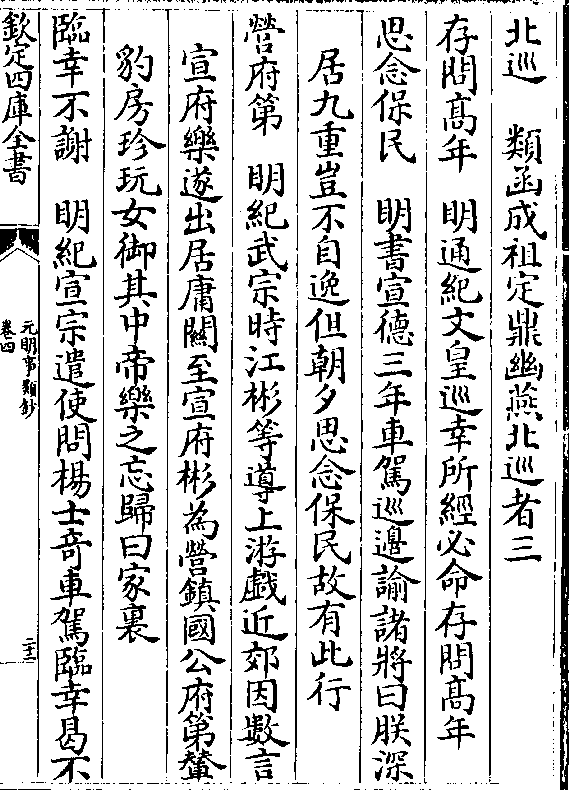 北巡　類函成祖定鼎幽燕北巡者三
存問髙年　明通紀文皇巡幸所經必命存問髙年
思念保民　明書宣德三年車駕巡邊諭諸將曰朕深
居九重豈不自逸但朝夕思念保民故有此行
營府第　明紀武宗時江彬等導上游戯近郊因數言
宣府樂遂出居庸關至宣府彬為營鎮國公府第輦
豹房珍玩女御其中帝樂之忘歸曰家裏
臨幸不謝　明紀宣宗遣使問楊士竒車駕臨幸曷不
欽定四庫全書
元明事類鈔
卷四
二十二